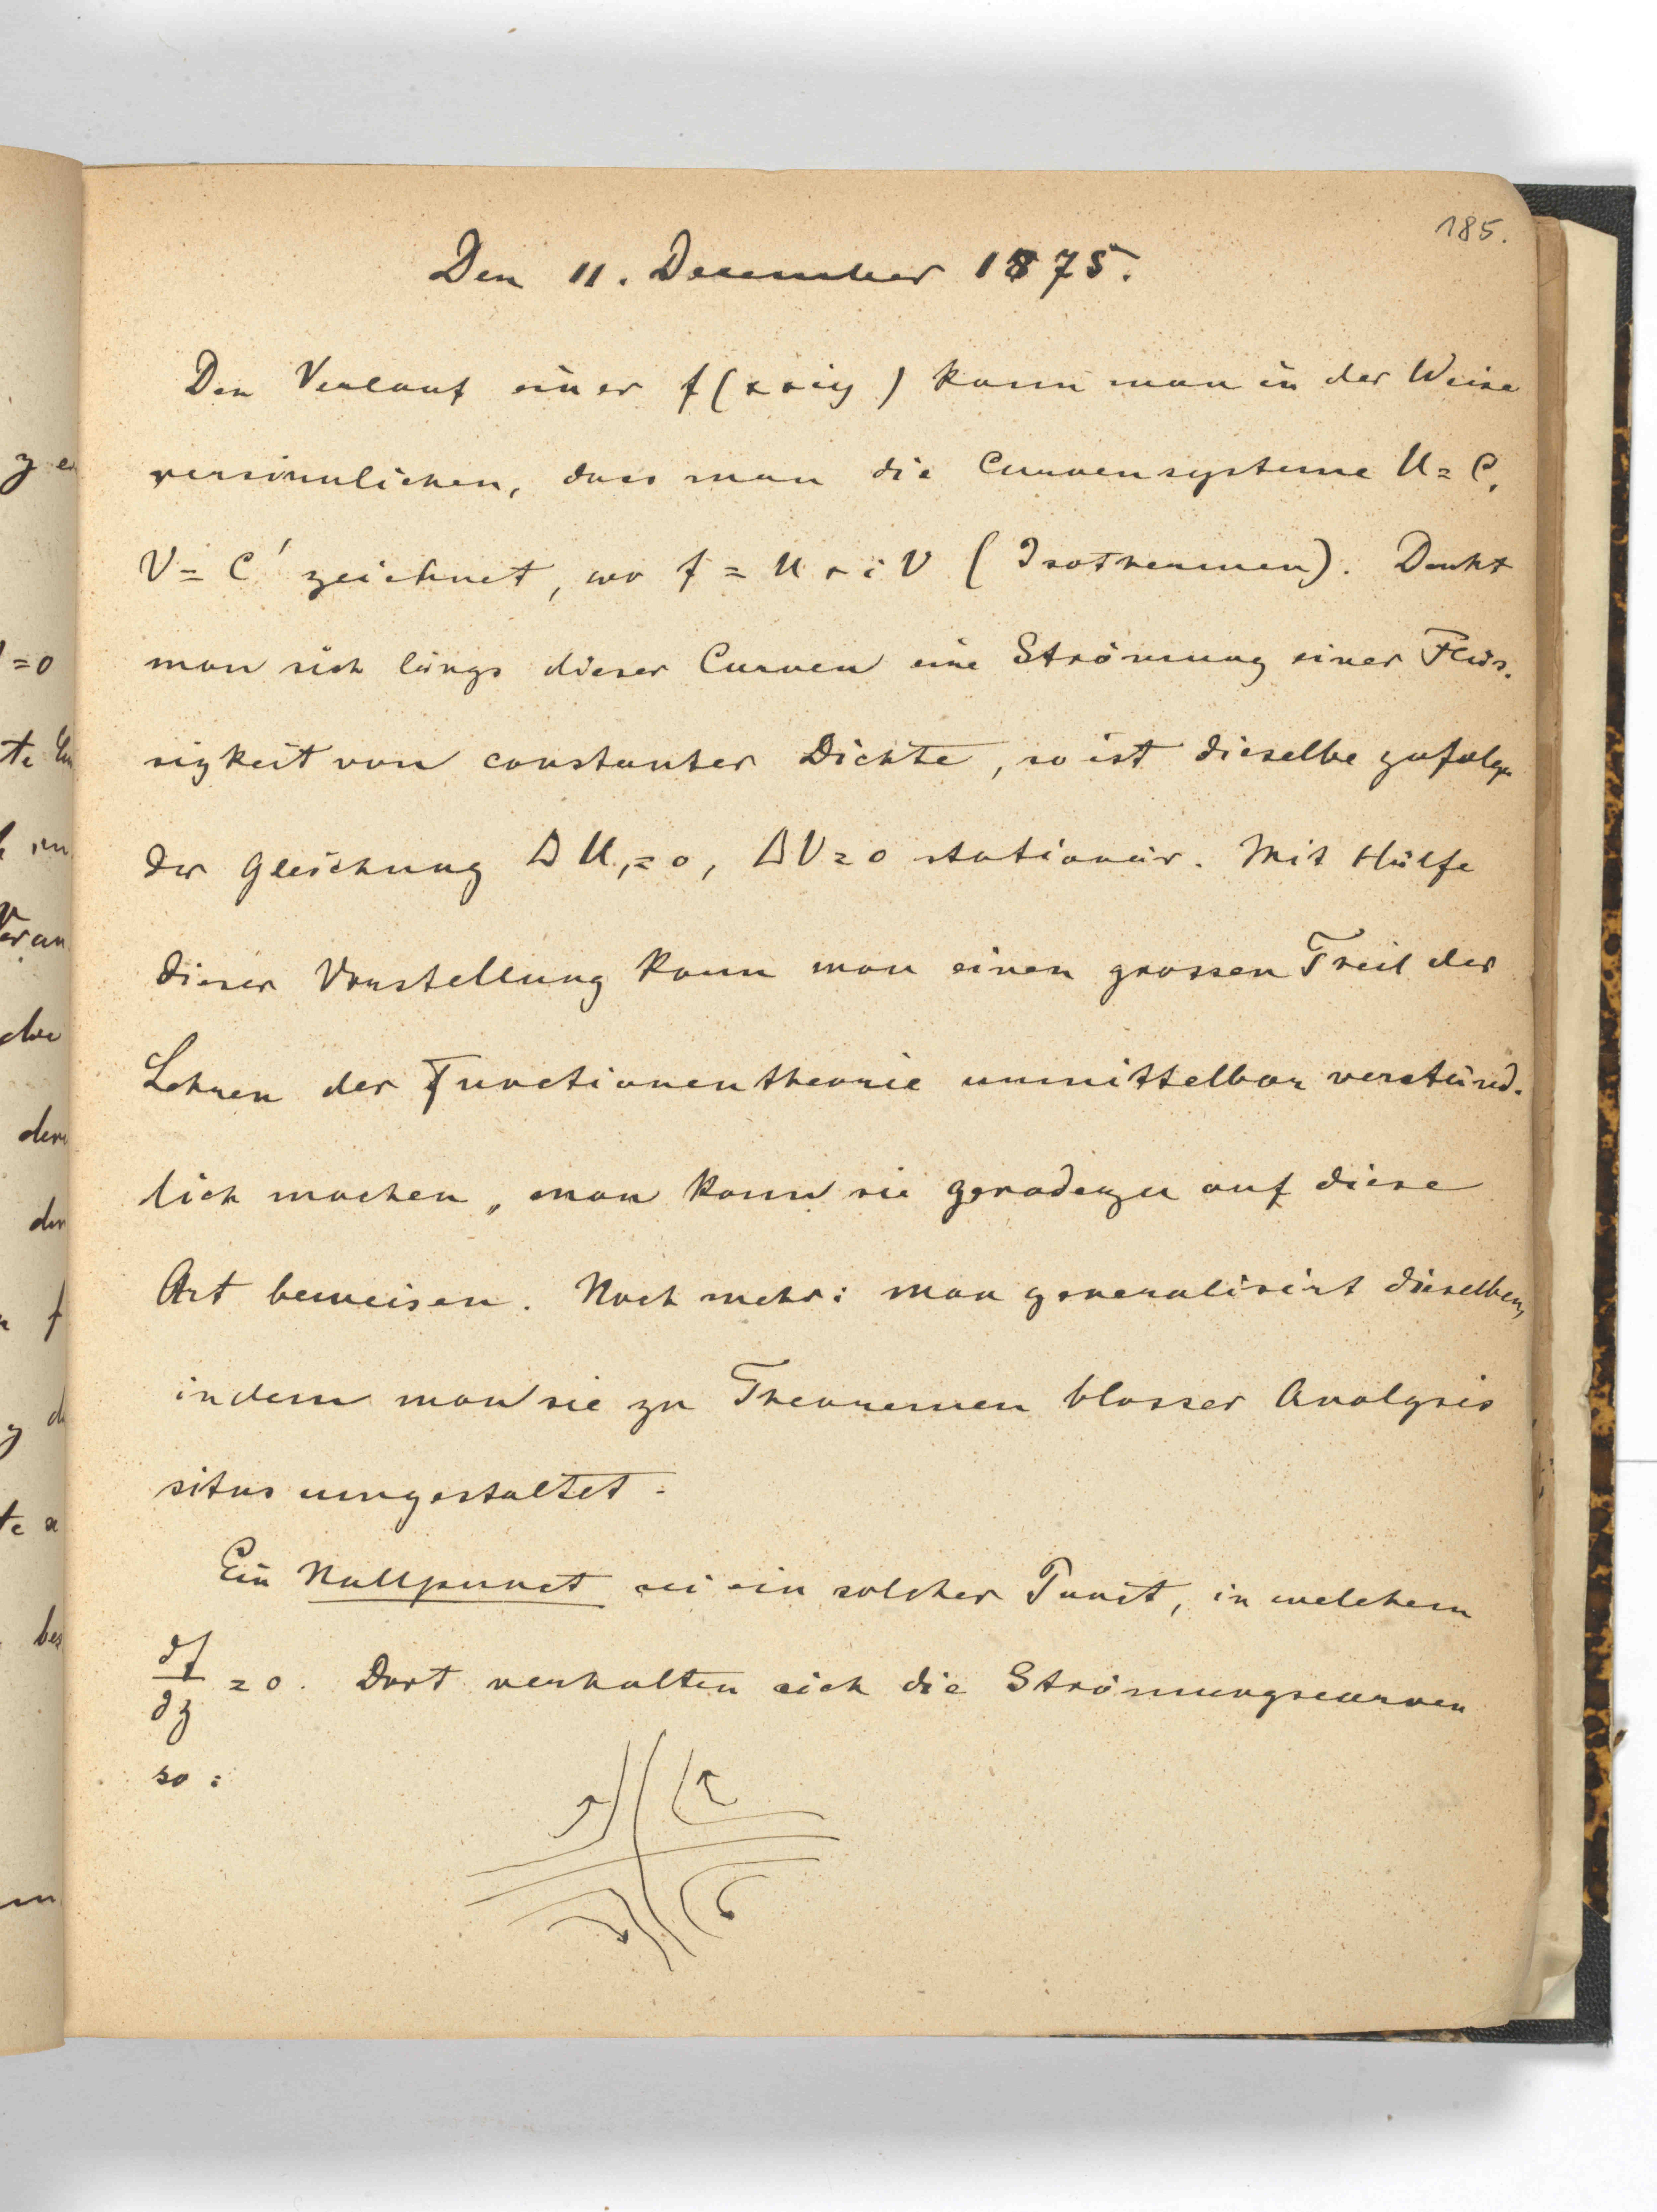 185.
Den 11. December 1875.
Den Verlauf einer f(x+iy) kann man in der Weise
versinnlichen, dass man die Curvensysteme U=C,
V=C' zeichnet, wo f = U+iV (Isothermen). Denkt
man sich längs dieser Curven eine Strömung einer Flüs-
sigkeit von constanter Dichte, so ist dieselbe zufolge
der Gleichung ΔU,=0, ΔV=0 stationär. Mit Hülfe
dieser Vorstellung kann man einen grossen Theil der
Lehren der Functionentheorie unmittelbar verständ-
lich machen, man kann sie geradezu auf diese
Art beweisen. Noch mehr: man generalisirt dieselben,
indem man sie zu Theoremen blosser Analysis
situs umgestaltet.
Ein Nullpunct sei ein solcher Punct, in welchem
∂f/∂z = 0. Dort verhalten sich die Strömungscurven
so: